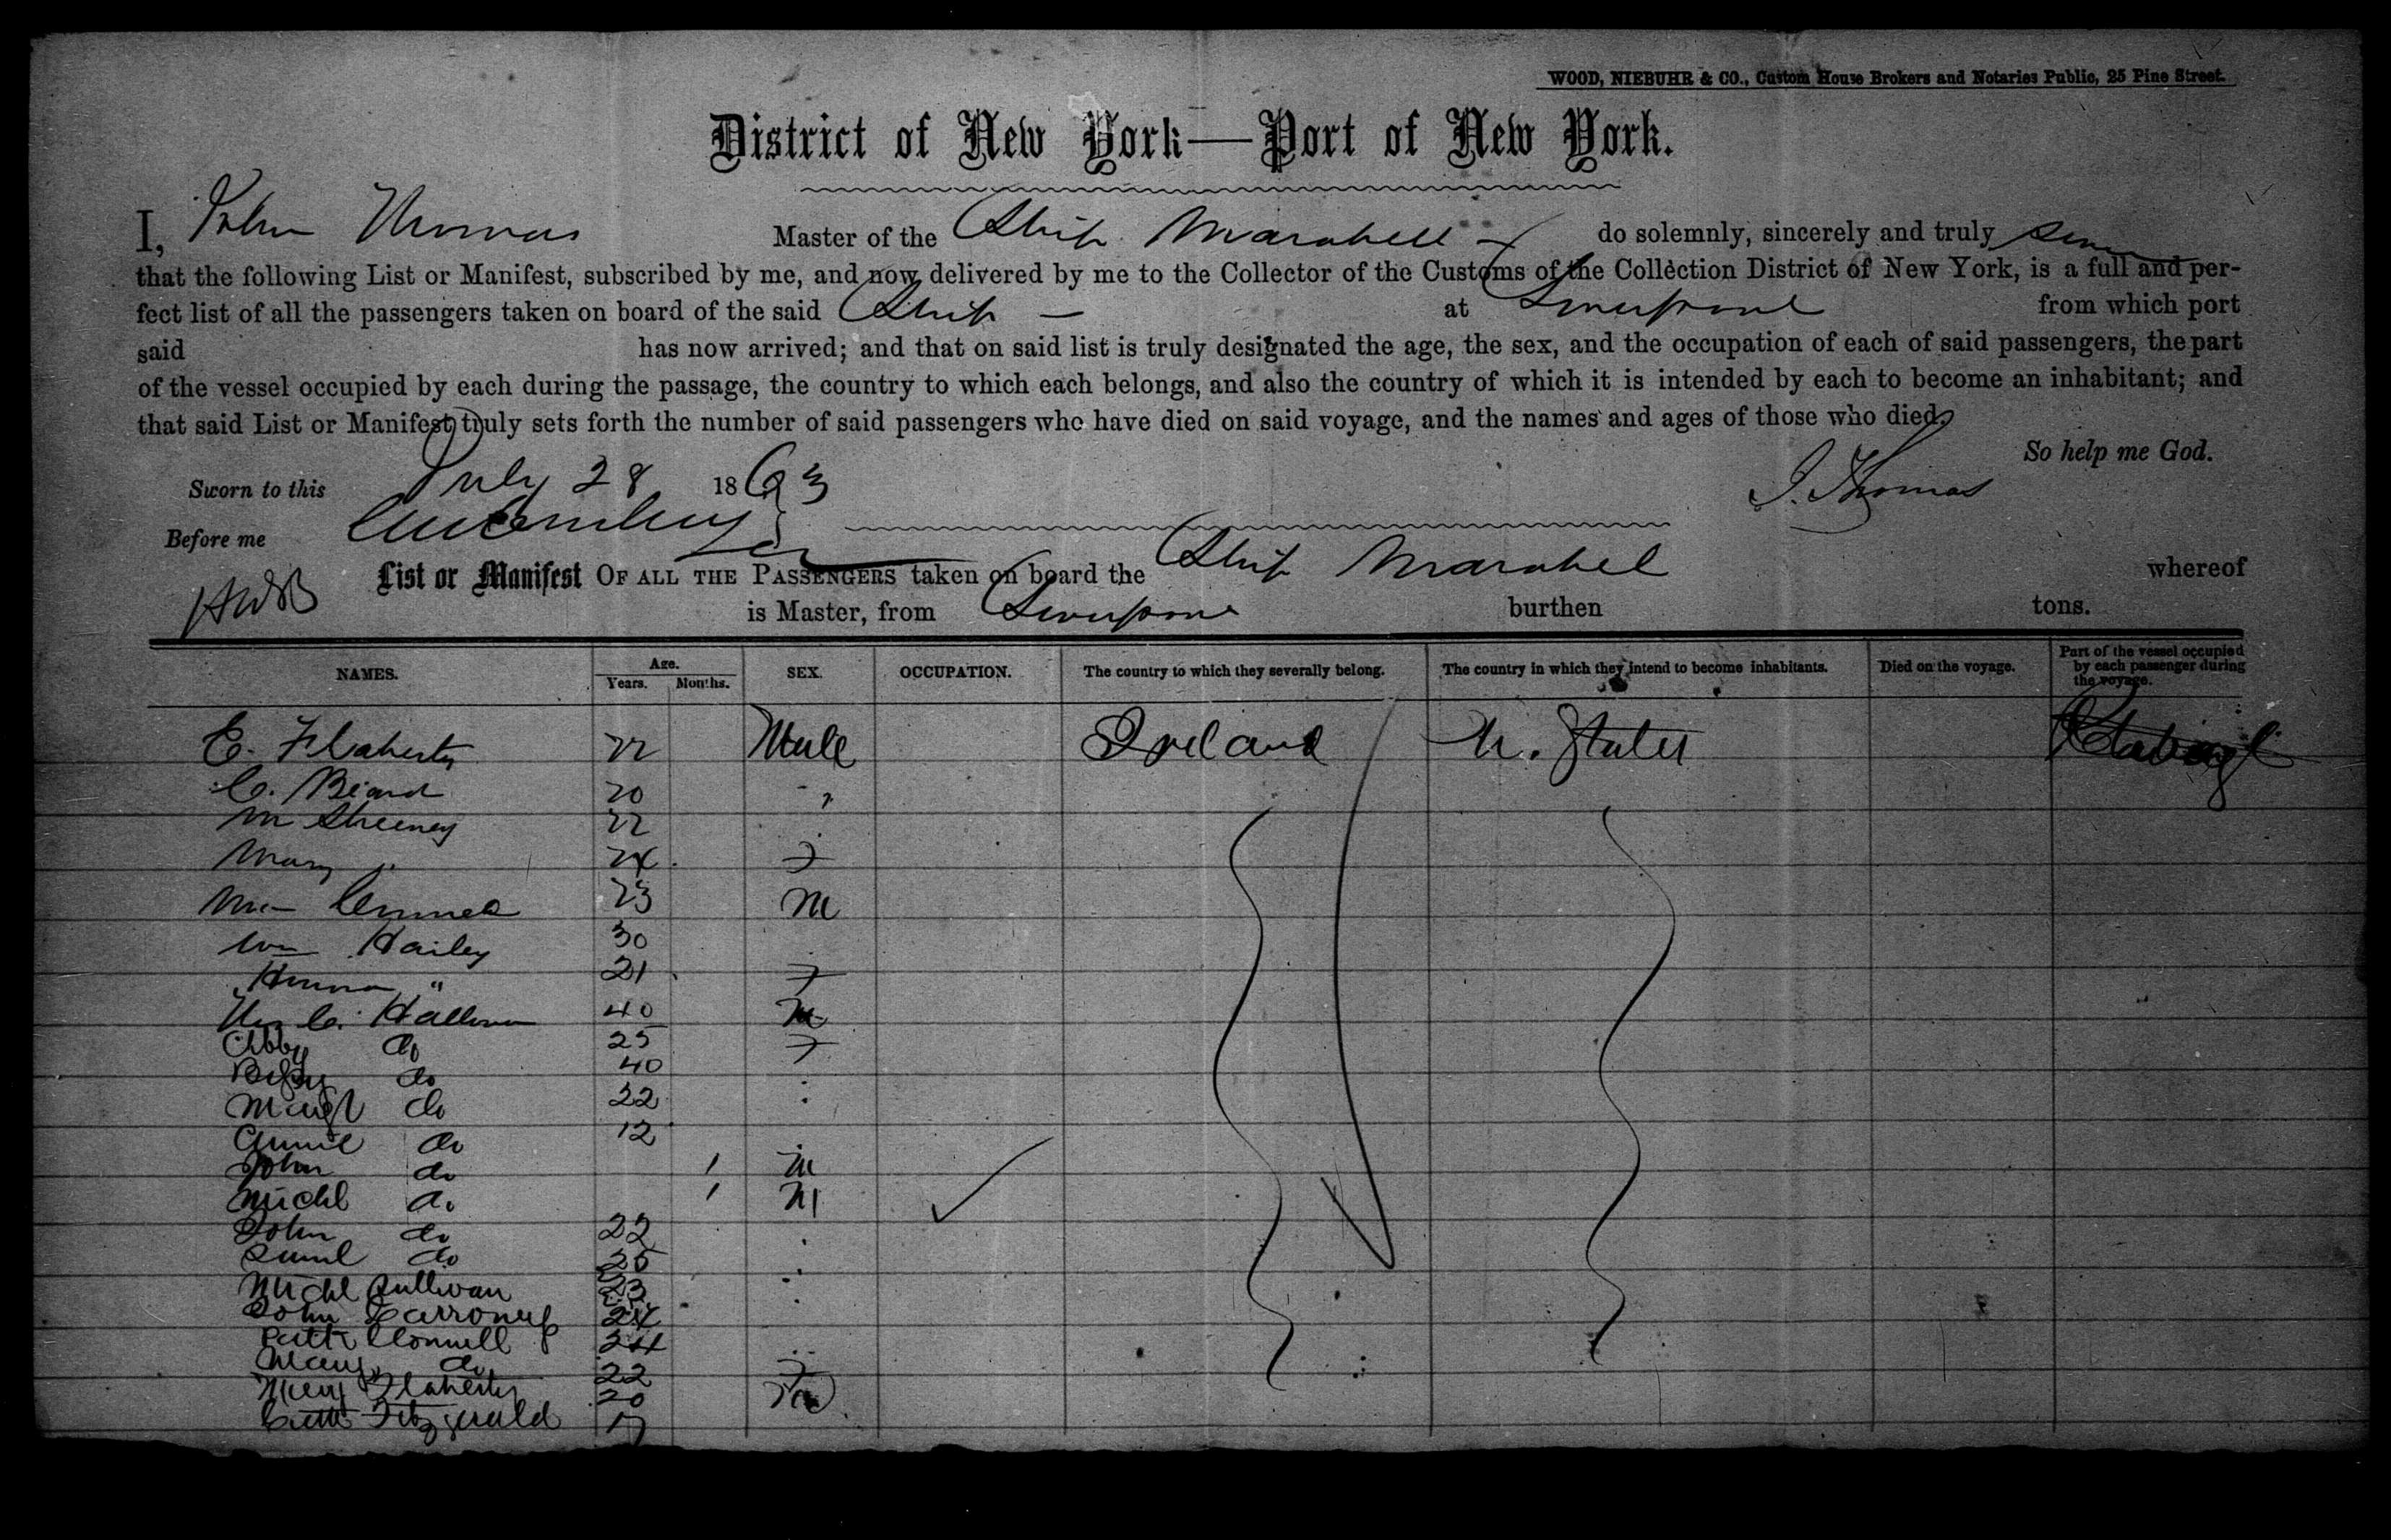 WOOD, NIEBUHR & CO., Custom House Brokers and Notaries Public, 25 Pine Street.
District of New York—Port of New York.
I, John Thomas Master of the Ship Marabell do solemnly, sincerely and truly swear
that the following List or Manifest, subscribed by me, and now delivered by me to the Collector of the Customs of the Collection District of New York, is a full and per-
fect list of all the passengers taken on board of the said Ship — at Liverpool from which port
said has now arrived; and that on said list is truly designated the age, the sex, and the occupation of each of said passengers, the part
of the vessel occupied by each during the passage, the country to which each belongs, and also the country of which it is intended by each to become an inhabitant; and
that said List or Manifest truly sets forth the number of said passengers who have died on said voyage, and the names and ages of those who died.
So help me God.
Sworn to this July 28 1863 J. Thomas
Before me
List or Manifest OF ALL THE PASSENGERS taken on board the Ship Marabel whereof
is Master, from Liverpool burthen tons.
NAMES. Age. Years. Months. SEX. OCCUPATION. The country to which they severally belong. The country in which they intend to become inhabitants. Died on the voyage. Part of the vessel occupied by each passenger during the voyage.
E. Flaherty 22 Male Ireland U. States
C. Beard 20 "
M Sheeney 22
Mary " 24 F
23 M
Wm Hailey 30
" 21 F
C. Halloran 40 M
Abby do 25 F
Betsy do 40
Margt do 22
Annie do 12
John do 1 M
Michl do 1 M
John do 22
do 25
Michl Sullivan 23
John 24
Patk Connell 24
Mary do 22 F
Mary Flaherty 20
Fitzgerald 17